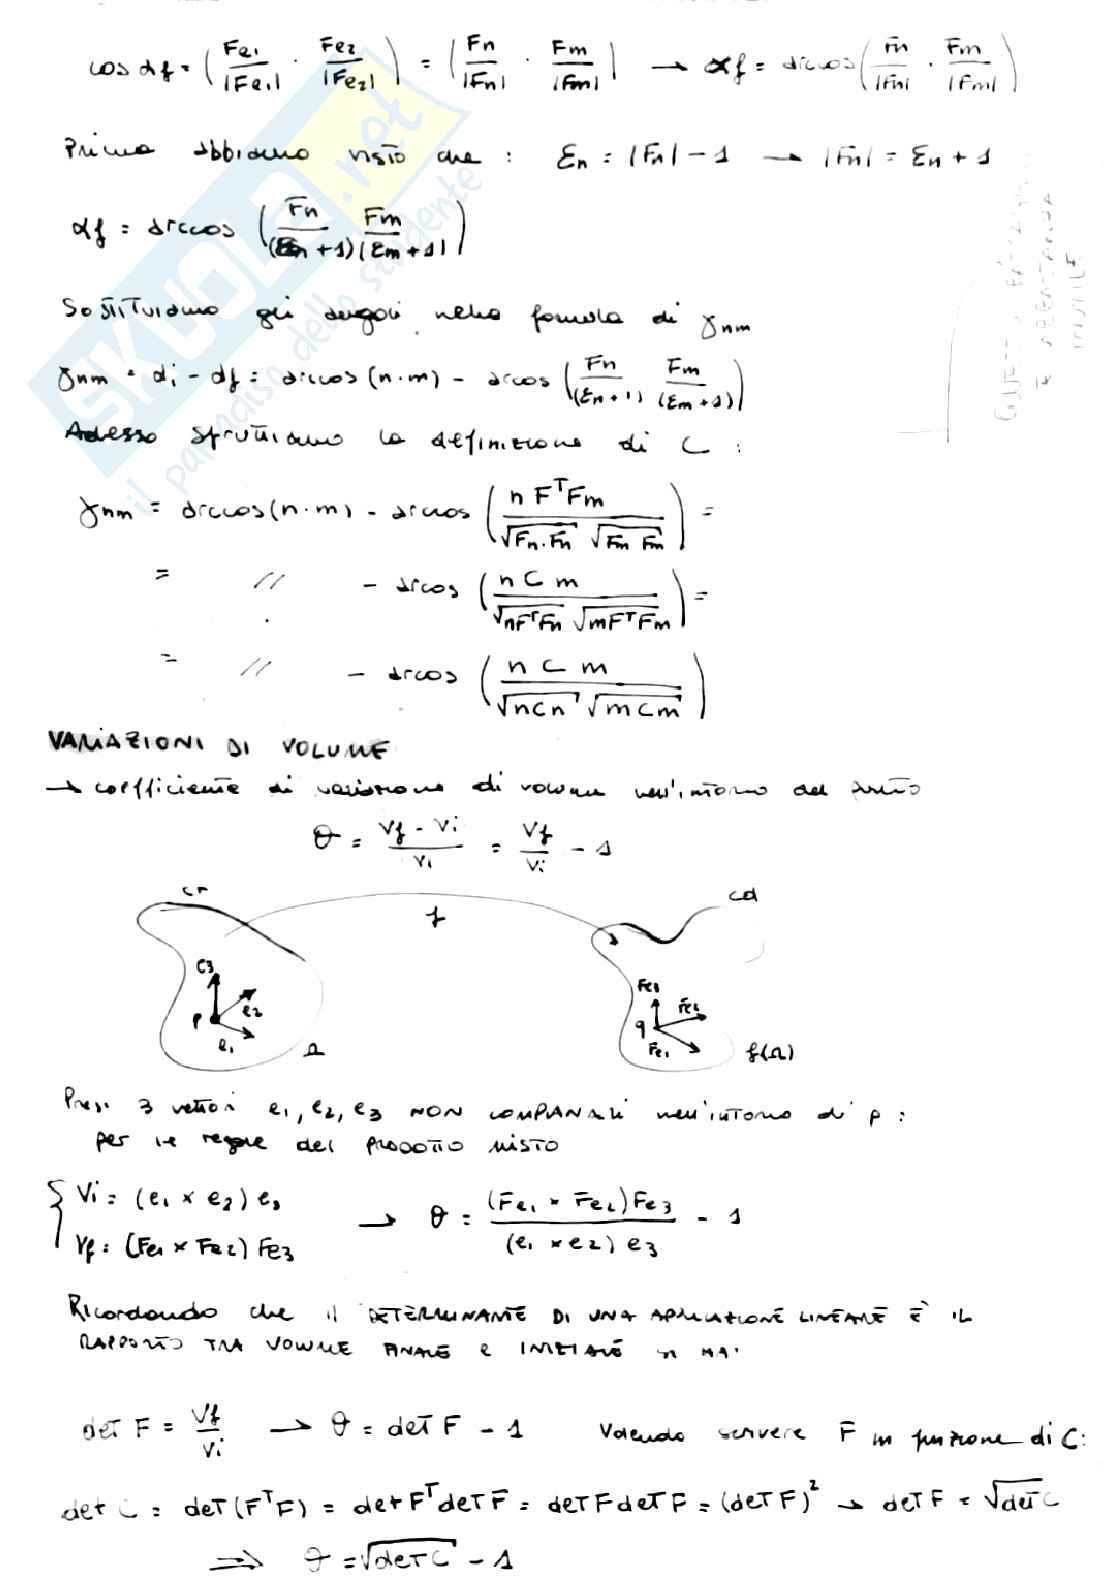 cos αf = (Fe1/|Fe1| · Fe2/|Fe2|) = (Fn/|Fn| · Fm/|Fm|) → αf = arccos(Fn/|Fn| · Fm/|Fm|)
Prima abbiamo visto che : εn = |Fn| - 1 → |Fn| = εn + 1
αf = arccos (Fn/(εn + 1) Fm/(εm + 1))
Sostituiamo gli angoli nella formula di γnm
γnm = αi - αf = arccos(n·m) - arcos (Fn/(εn + 1) Fm/(εm + 1))
Adesso sfruttiamo la definizione di C :
γnm = arccos(n·m) - arccos (n F^T Fm / √Fn·Fn √Fm Fm) =
= // - arcos (n C m / √nF^TFn √mF^TFm) =
= // - arcos (n C m / √nCn √mCm)
VARIAZIONI DI VOLUME
→ coefficiente di variazione di volume nell'intorno del punto
θ = (Vf - Vi)/Vi = Vf/Vi - 1
Cr
f
Cd
e3
e2
P
e1
Ω
Fe3
Fe2
q
Fe1
f(Ω)
Presi 3 vettori e1, e2, e3 NON COMPLANARI nell'intorno di p :
per le regole del PRODOTTO MISTO
Vi = (e1 × e2) e3
Vf = (Fe1 × Fe2) Fe3
→ θ = (Fe1 × Fe2) Fe3 / (e1 × e2) e3 - 1
Ricordando che il DETERMINANTE DI UNA APPLICAZIONE LINEARE È IL
RAPPORTO TRA VOLUME FINALE e INIZIALE si HA:
det F = Vf/Vi → θ = det F - 1 Volendo scrivere F in funzione di C:
det C = det (F^T F) = det F^T det F = det F det F = (det F)^2 → det F = √det C
⇒ θ = √det C - 1
SKUOLA.net
il paradiso dello studente